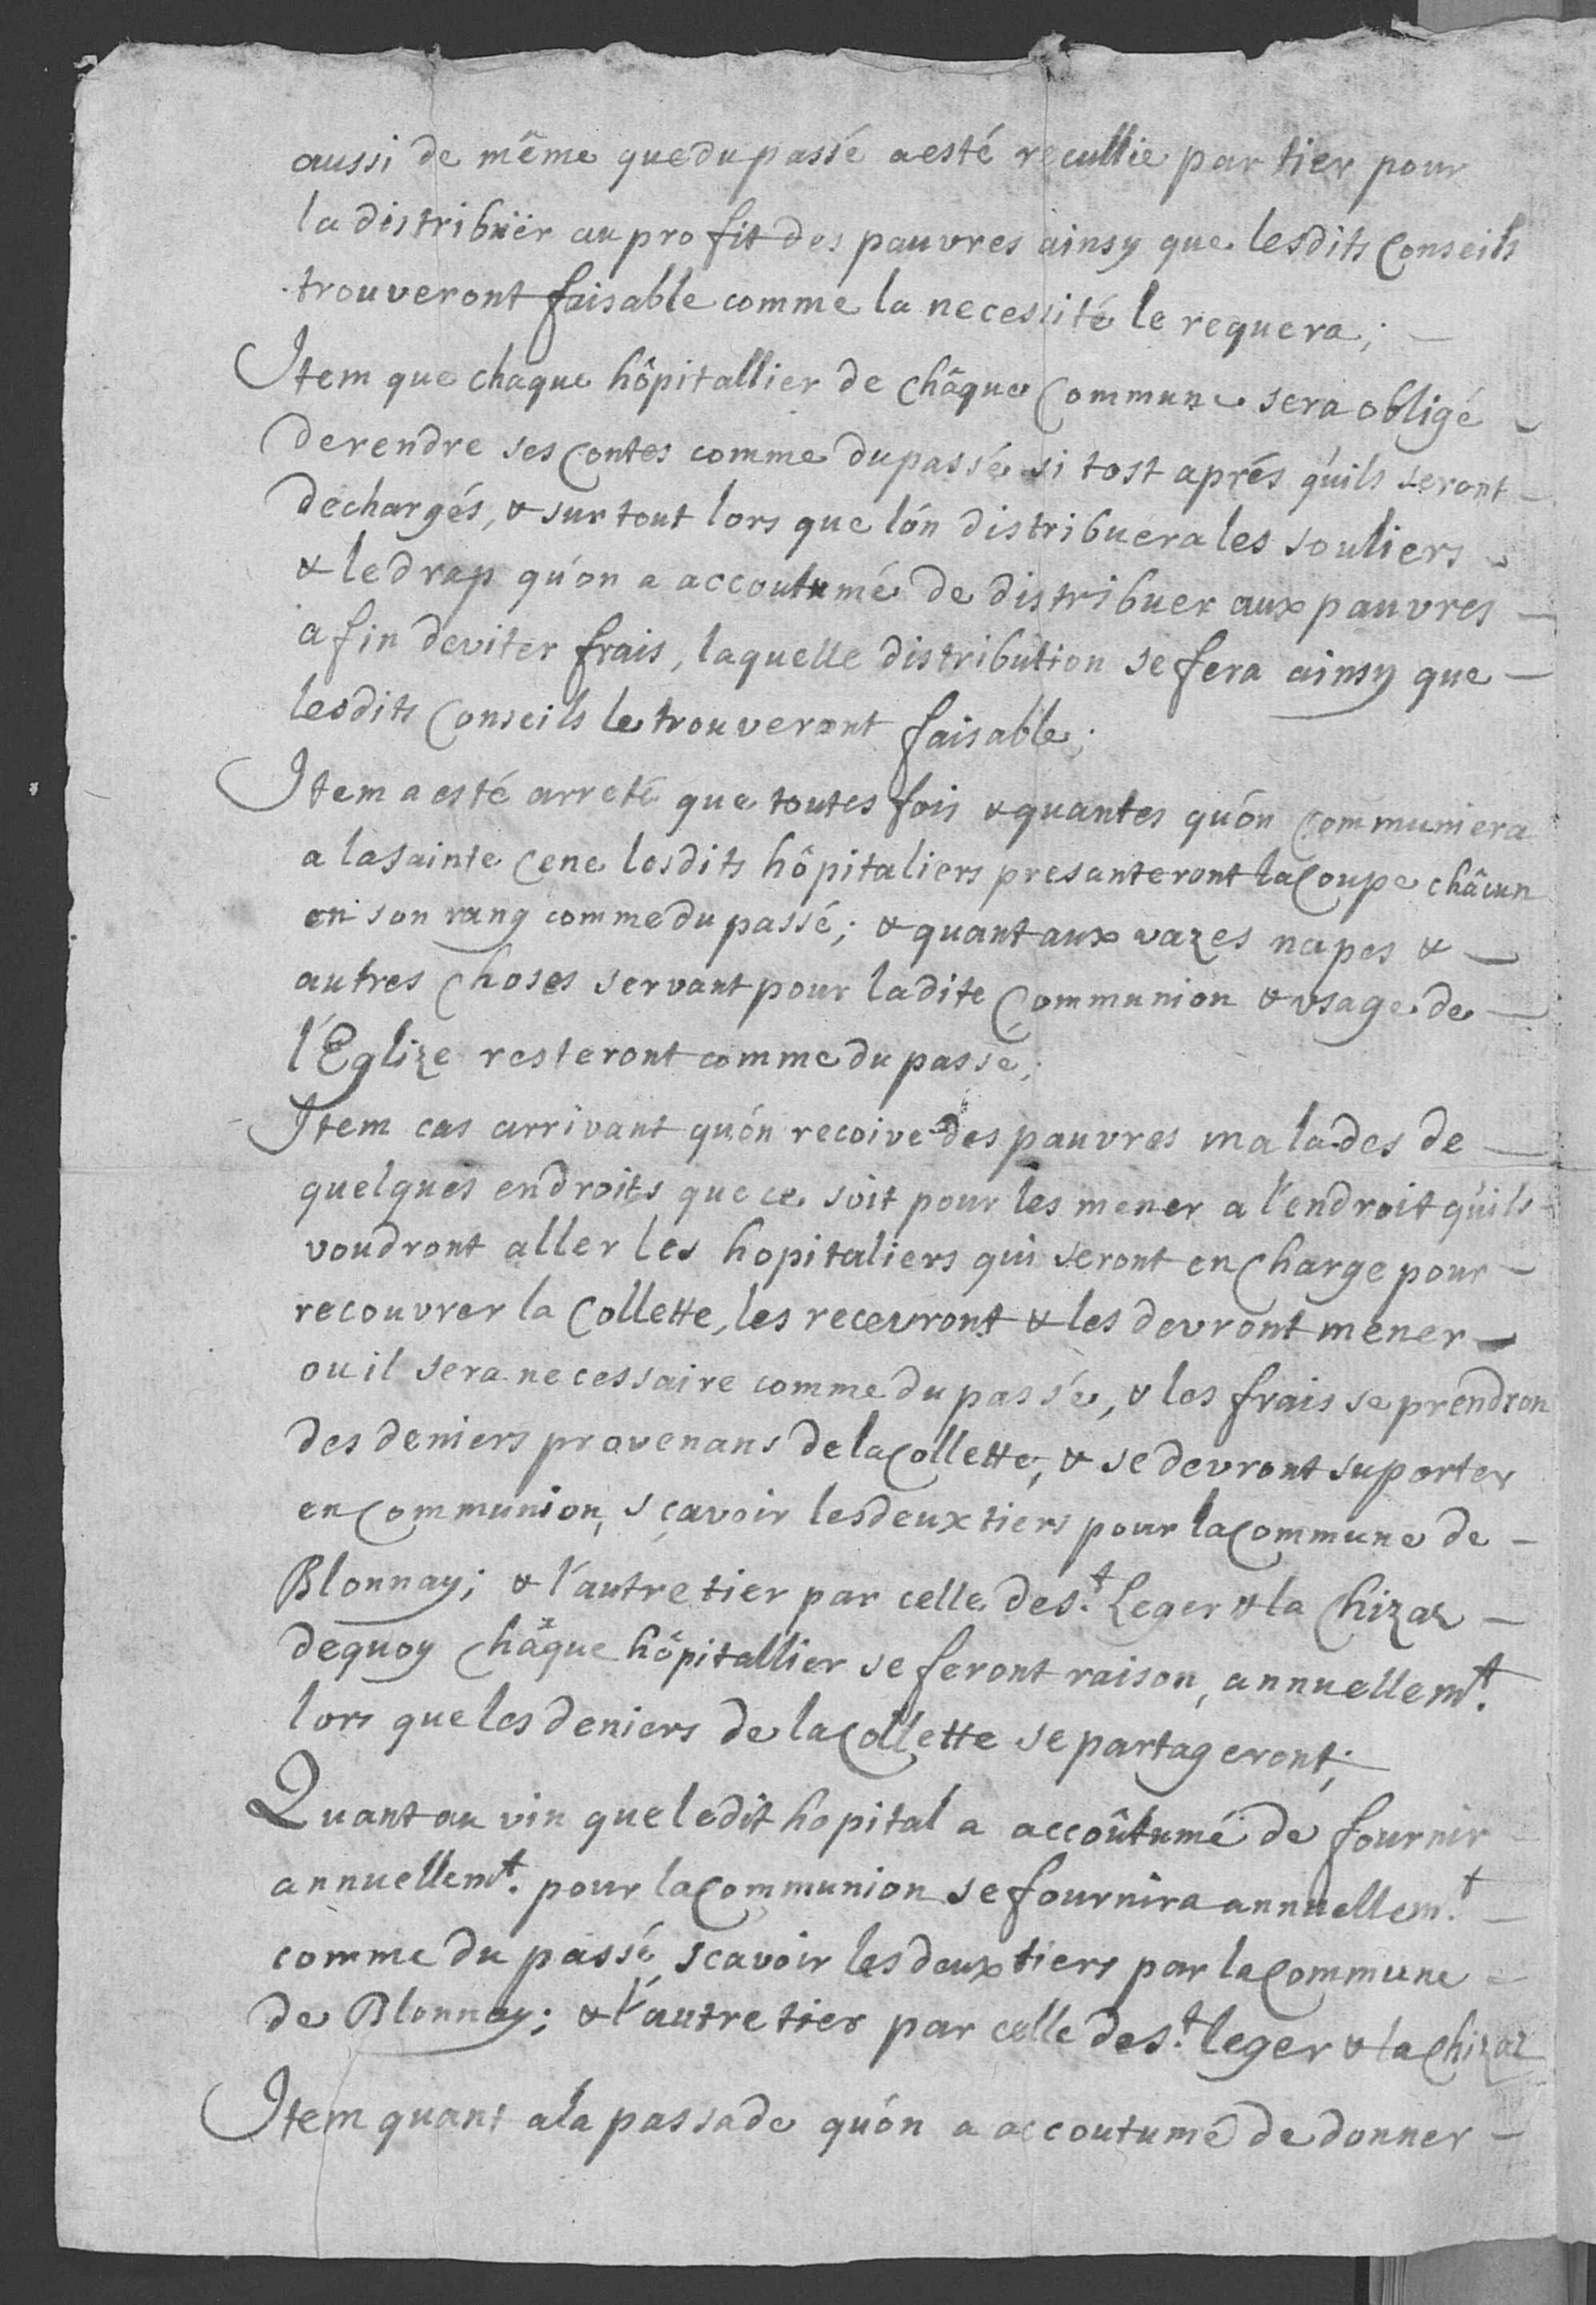 aussi de même que du passé a esté recullie par tier pour
la distribuër au profit des pauvres ainsy que lesdits Conseils
trouveront faisable comme la necessité le requera; —
Item que chaque hôpitallier de châque Commune sera obligé –
de rendre ses Contes comme du passé si tost aprés qu'ils seront –
dechargés, & sur tout lors que l'ón distribuera les souliers –
& le drap qu'on a accoutumé de distribuer aux pauvres –
afin deviter frais, laquelle distribution se fera ainsy que –
lesdits Conseils le trouveront faisable;
Item a esté arreté que toutes fois & quantes qu'ón Communiera
a la Sainte Cene lesdits hôpitaliers presanteront la Coupe châcun
en son rang comme du passé; & quant aux vazes napes & —
autres Choses servant pour ladite Communion & usage de —
l'Eglize resteront comme du passé;
Item cas arrivant qu'ón recoive des pauvres malades de —
quelques endroits que ce soit pour les mener a l'endroit qu'ils –
voudront aller les hopitaliers qui seront en Charge pour –
recouvrer la Collette, les recevront & les devront mener –
ou il sera necessaire comme du passé, & les frais se prendron
des deniers provenans de la Collette, & se devront suporter
en Communion, sçavoir les deux tiers pour la Commune de –
Blonnay; & l'autre tier par celle de s.t Leger & la Chizaz –
dequoy Châque hôpitallier se feront raison, annuellem.t
lors que les deniers de la Collette se partageront;
Quant au vin que ledit hopital a accoûtumé de fournir
annuellem.t pour la Communion se fournira annuellem.t –
comme du passé, scavoir les deux tiers par la Commune –
de Blonnay; & l'autre tier par celle de s.t leger & la Chizaz
Item quant a la passade qu'ón a accoutumé de donner –